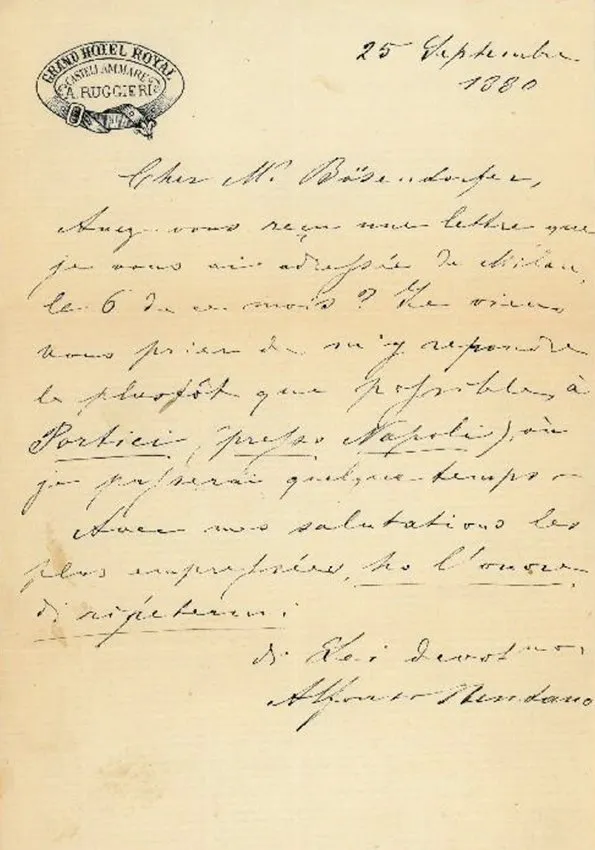 GRAND HOTEL ROYAL
CASTELLAMMARE
A. RUGGIERI
25 Septembre
1880
Cher Mr Bösendorfer,
Avez-vous reçu une lettre que
je vous ai adressée de Milan,
le 6 de ce mois? Je viens
vous prier de m'y repondre
le plustôt que possible, à
Portici (presso Napoli), où
je passerai quelque temps.
Avec mes salutations les
plus empressées, ho l'onore
di ripetermi
di Lei devotmo
Alfonso Rendano